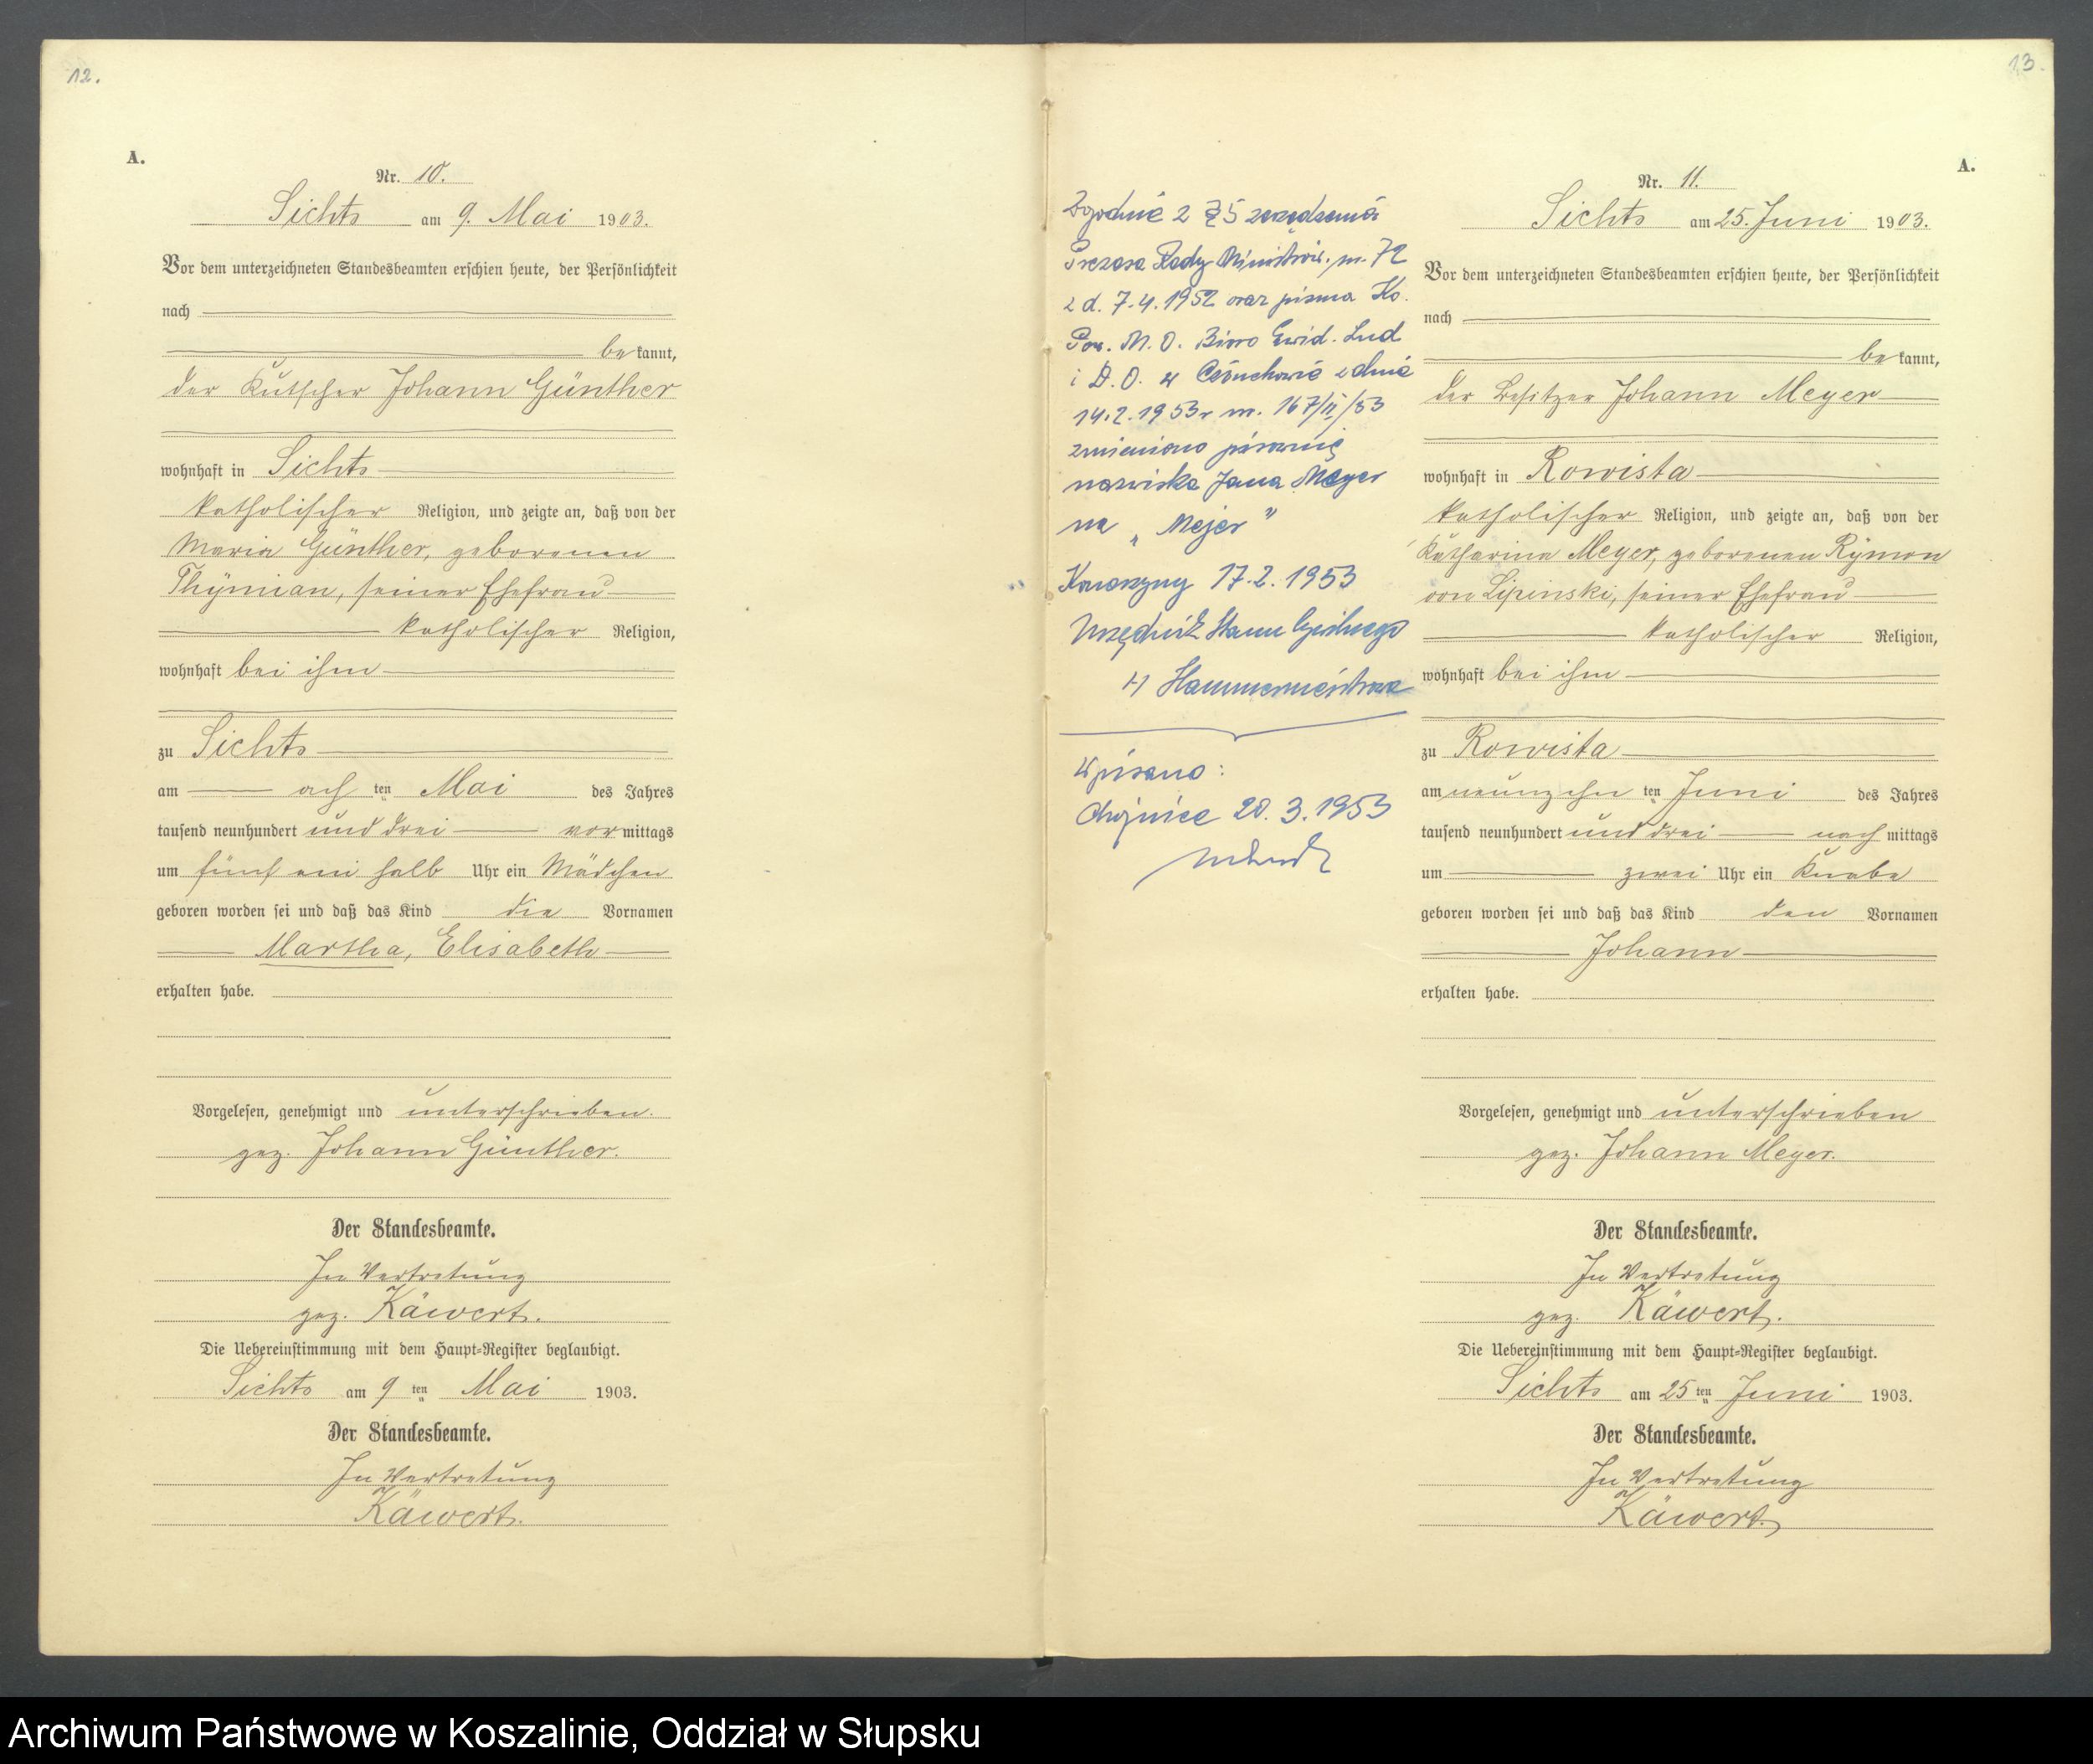 12.
A.
Nr. 10.
Sichts am 9. Mai 1903.
Vor dem unterzeichneten Standesbeamten erschien heute, der Persönlichkeit
nach
bekannt,
der Kutscher Johann Günther
wohnhaft in Sichts
katholischer Religion, und zeigte an, daß von der
Maria Günther, geborenen
Thymian, seiner Ehefrau
katholischer Religion,
wohnhaft bei ihm
zu Sichts
am achten Mai des Jahres
tausend neunhundert und drei vormittags
um fünf ein halb Uhr ein Mädchen
geboren worden sei und daß das Kind die Vornamen
Martha, Elisabeth
erhalten habe.
Vorgelesen, genehmigt und unterschrieben.
gez. Johann Günther.
Der Standesbeamte.
In Vertretung
gez. Käwert.
Die Uebereinstimmung mit dem Haupt-Register beglaubigt.
Sichts am 9ten Mai 1903.
Der Standesbeamte.
In Vertretung
Käwert.
Zgodnie z § 5 zarządzenia
Prezesa Rady Ministrów. nr. 72
z d. 7.4.1952 oraz pisma Ko.
Pow. M. O. Biuro Ewid. Lud
i D. O. w Człuchowie z dnia
14.2.1953r nr. 167/II/53
zmieniono pisownię
nazwiska Jana Meyer
na „Mejer"
Konarzyny 17.2.1953
Urzędnik Stanu Cywilnego
(-) Hammermeistrowa
Wpisano:
Chojnice 20.3.1953
13.
A.
Nr. 11.
Sichts am 25. Juni 1903.
Vor dem unterzeichneten Standesbeamten erschien heute, der Persönlichkeit
nach
bekannt,
der Besitzer Johann Meyer
wohnhaft in Rowista
katholischer Religion, und zeigte an, daß von der
Katharina Meyer, geborenen Rymon
von Lipinski, seiner Ehefrau
katholischer Religion,
wohnhaft bei ihm
zu Rowista
am neunzehnten Juni des Jahres
tausend neunhundert und drei nachmittags
um zwei Uhr ein Knabe
geboren worden sei und daß das Kind den Vornamen
Johann
erhalten habe.
Vorgelesen, genehmigt und unterschrieben
gez. Johann Meyer.
Der Standesbeamte.
In Vertretung
gez. Käwert.
Die Uebereinstimmung mit dem Haupt-Register beglaubigt.
Sichts am 25ten Juni 1903.
Der Standesbeamte.
In Vertretung
Käwert.
Archiwum Państwowe w Koszalinie, Oddział w Słupsku